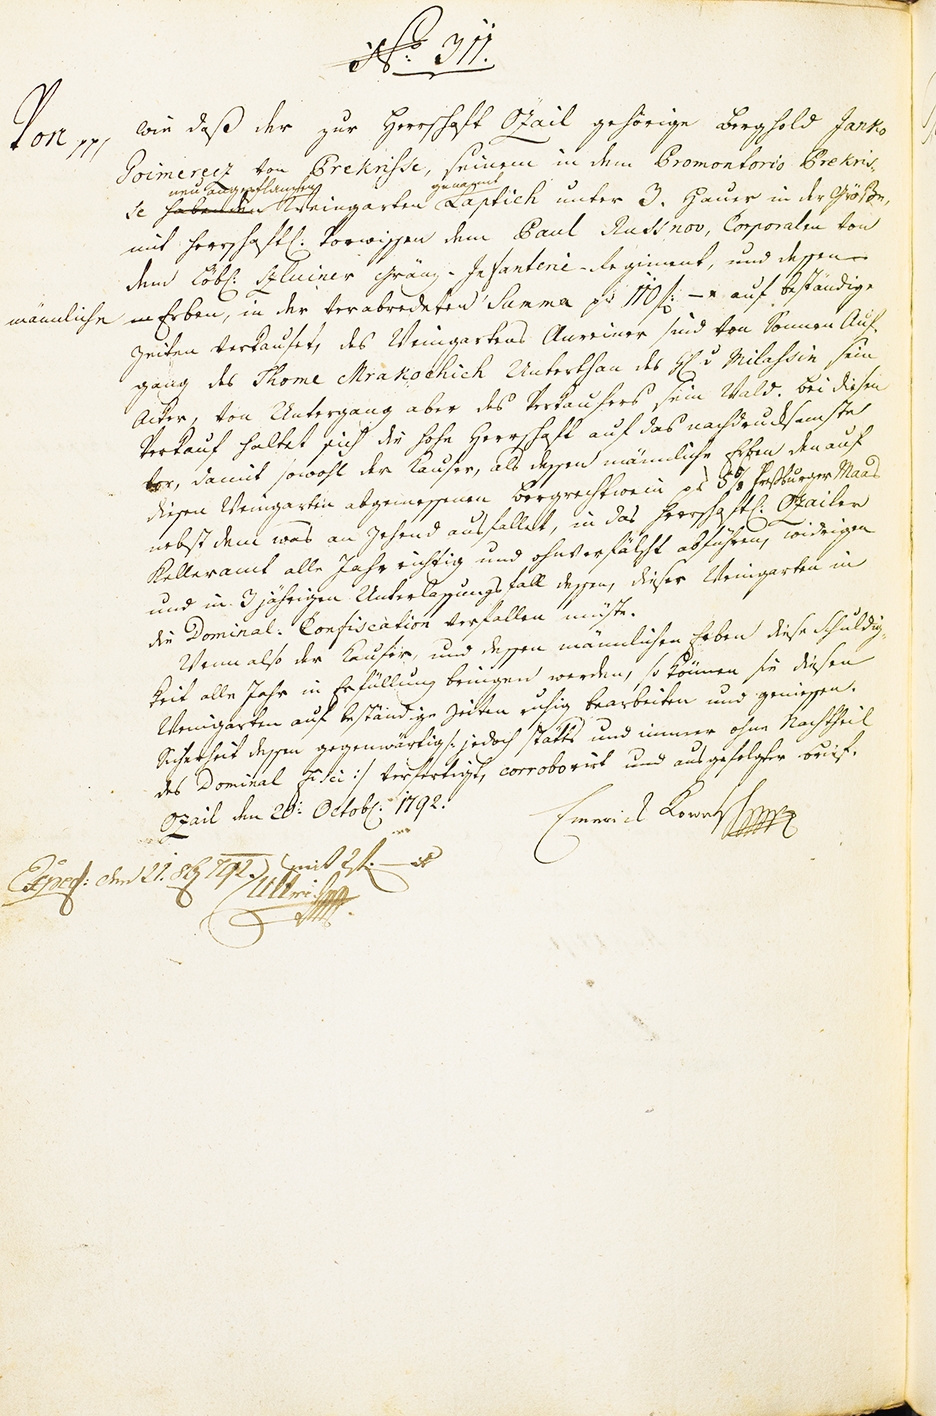 No: 311.
Von pp wie daß der zur Herrschaft Ozail gehörige Berghold Janko
Goimerecz von Prekrisse, seinem in dem Promontorio Prekris-
se habenden neu angepflanzten Weingarten Laptich genannt unter 3. Hauer in der Größe,
mit herrschaftl: Vorwissen dem Paul Russnov, Corporalen von
dem Löbl: Szluiner Gränz-Infanterie-Regiment, und dessen
männliche Erben, in der verabredeten Summa pr 110 f: auf beständige
Zeiten verkaufet, des Weingartens Anreiner sind von Sonnen Auf-
gang des Thome Mrakochich Unterthan des H: v Milassin sein
Acker, von Untergang aber des Verkaufers sein Wald. Bei diesen
Verkauf haltet sich die hohe Herrschaft auf das nachdrucksamste
vor, damit sowohl der Kaufer, als dessen männliche Erben den auf
diesen Weingarten abgemessenen Bergrechtwein pr Preßburger Maas
nebst dem was an Zehend ausfallet, in das herrschaftl: Ozailer
Kelleramt alle Jahr richtig und ohnverfälscht abführen, widrigen
und in 3 jährigen Unterlassungsfall dessen, dieser Weingarten in
die Dominal-Confiscation verfallen müste.
Wenn also der Kaufer, und dessen männlichen Erben diese Schuldig-
keit alle Jahr in Erfüllung bringen werden, so können sie diesen
Weingarten auf beständige Zeiten ruhig bearbeiten und geniessen.
Sicherheit dessen gegenwärtigs jedoch stätts und immer ohne Nachtheil
des Dominal Fisci :/ verfertigt, corroborirt und ausgefolgter brief.
Ozail den 20: Octob: 1792.
Emerich
Exped: den 21. 8b 792. mit 2 f.